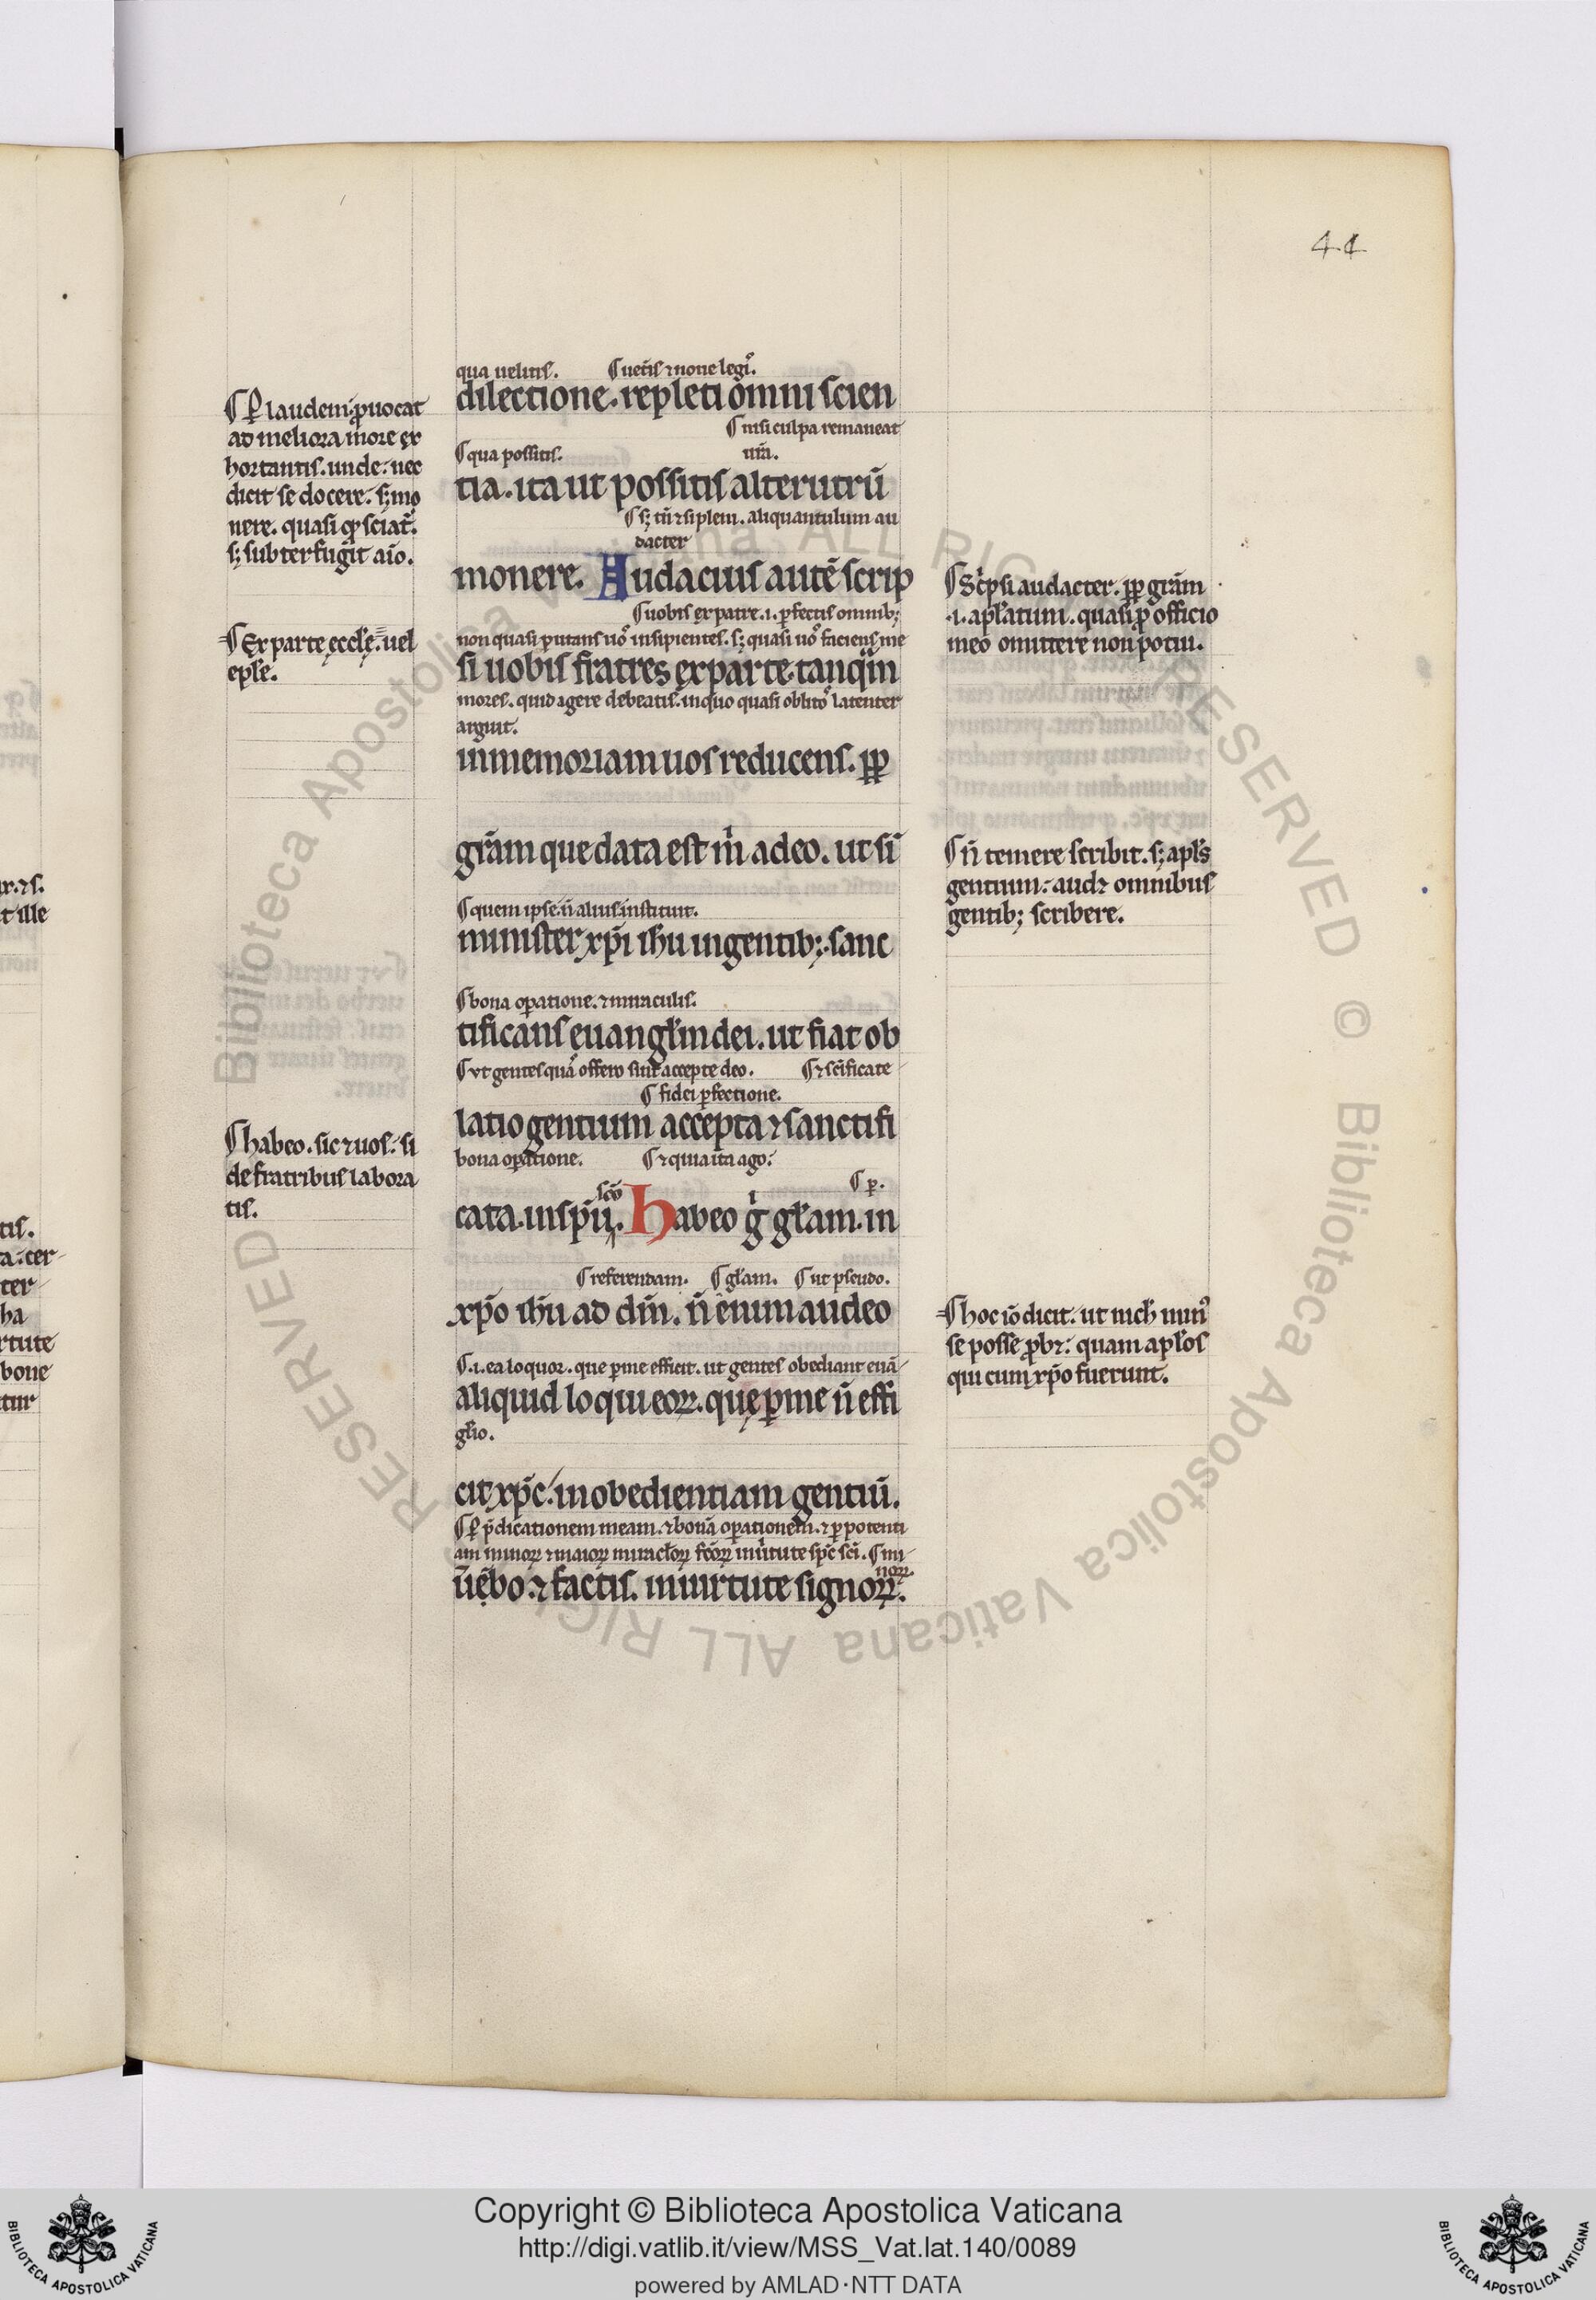 44
qua uelitis. ¶ uet̄is ⁊ noue legi᷒.
dilectione. repleti omni scien
¶ nisi culpa remaneat
¶ qua possitis. ur̄a.
tia. ita ut possitis alterutrū
¶ sꝫ tn̄ ⁊ si plem. aliquantulum au
dacter
monere. Audacius autē scrip
¶ uobis ex patre .i. ꝑfectis omnibꝫ
non quasi putans uo᷒ insipientes. sꝫ quasi uo᷒ faciens me
si uobis fratres ex parte. tanq̄m
mores. quid agere debeatis. in quo quasi oblito᷒ latenter
arguit.
in memoriam uos reducens. ꝓp
gr̄am que data est m̄ adeo. ut si
¶ quem ipse. n̄ alius instituit.
minister xp̄i ih̄u in gentibꝫ. sanc
¶ bona oꝑatione. ⁊ miraculis.
tificans euangl̄m dei. ut fiat ob
¶ ut gentes quā offero sint accepte deo. ¶ ⁊ sc̄ificate
¶ fidei ꝑfectione.
latio gentium accepta ⁊ sanctifi
bona oꝑatione. ¶ ⁊ quia ita ago.
sc̄o ¶ ꝑ.
cata. in sp̄u. Habeo gͥ gl̄am. in
¶ referendam. ¶ gl̄am. ¶ ut pseudo.
xp̄o ih̄u ad dm̄. n̄ enim audeo
¶ .i. ea loquor. que ꝑ me efficit. ut gentes obediant euā
aliquid loqui eoꝝ. quę ꝑ me n̄ effi
gl̄io.
cit xp̄c. in obedientiam gentiū.
¶ Ꝑ p̄dicationem meam. ⁊ bonā oꝑationem. ⁊ ꝑ potenti
am minoꝝ ⁊ maioꝝ miracl̄oꝝ fc̄oꝝ in uirtute sp̄c sc̄i. ¶ mi
noꝝ.
ūebo. ⁊ factis. in uirtute signoꝝ.
¶ Ꝑ laudem ꝓuocat
ad meliora more ex
hortantis. unde. nec
dicit se docere. sꝫ mo
nere. quasi qđ sciat̄.
sꝫ subterfugit aīo.
¶ Ex parte ęccl̄ę. uel
epl̄e.
¶ habeo. sic ⁊ uos. si
de fratribus labora
tis.
¶ Scͥpsi audacter. ꝓp gr̄am
.i. apl̄atum. quasi ꝓ officio
meo omittere non potui.
¶ n̄ temere scribit. sꝫ apl̄s
gentium. audꝫ omnibus
gentibꝫ scribere.
¶ hoc iō dicit. ut nich̄ min᷒
se posse ꝓbꝫ. quam apl̄os
qui cum xp̄o fuerunt.
Copyright © Biblioteca Apostolica Vaticana
http://digi.vatlib.it/view/MSS_Vat.lat.140/0089
powered by AMLAD·NTT DATA